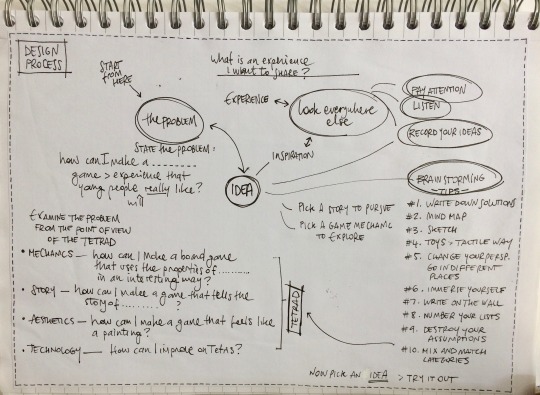 DESIGN
PROCESS
START
FROM
HERE
What is an experience
I want to share?
the PROBLEM
EXPERIENCE
Look everywhere
else
PAY ATTENTION
LISTEN
RECORD YOUR IDEAS
STATE THE PROBLEM:
how can I make a ..........
game > experience that
young people really like?
will
INSPIRATION
IDEA
BRAINSTORMING
TIPS
PICK A STORY TO PURSUE
PICK A GAME MECHANIC
TO EXPLORE
#1. WRITE DOWN SOLUTIONS
#2. MIND MAP
#3. SKETCH
#4. TOYS > TACTILE WAY
#5. CHANGE YOUR PERSP.
GO IN DIFFERENT
PLACES
#6. IMMERSE YOURSELF
#7. WRITE ON THE WALL
#8. NUMBER YOUR LISTS
#9. DESTROY YOUR
ASSUMPTIONS
#10. MIX AND MATCH
CATEGORIES
EXAMINE THE PROBLEM
FROM THE POINT OF VIEW
OF THE TETRAD
• MECHANICS — how can I make a board game
that uses the properties of ..........
in an interesting way?
• STORY — how can I make a game that tells the
story of .......... ?
• AESTHETICS — how can I make a game that feels like
a painting?
• TECHNOLOGY — How can I improve on Tetris?
TETRAD
NOW PICK AN IDEA > TRY IT OUT